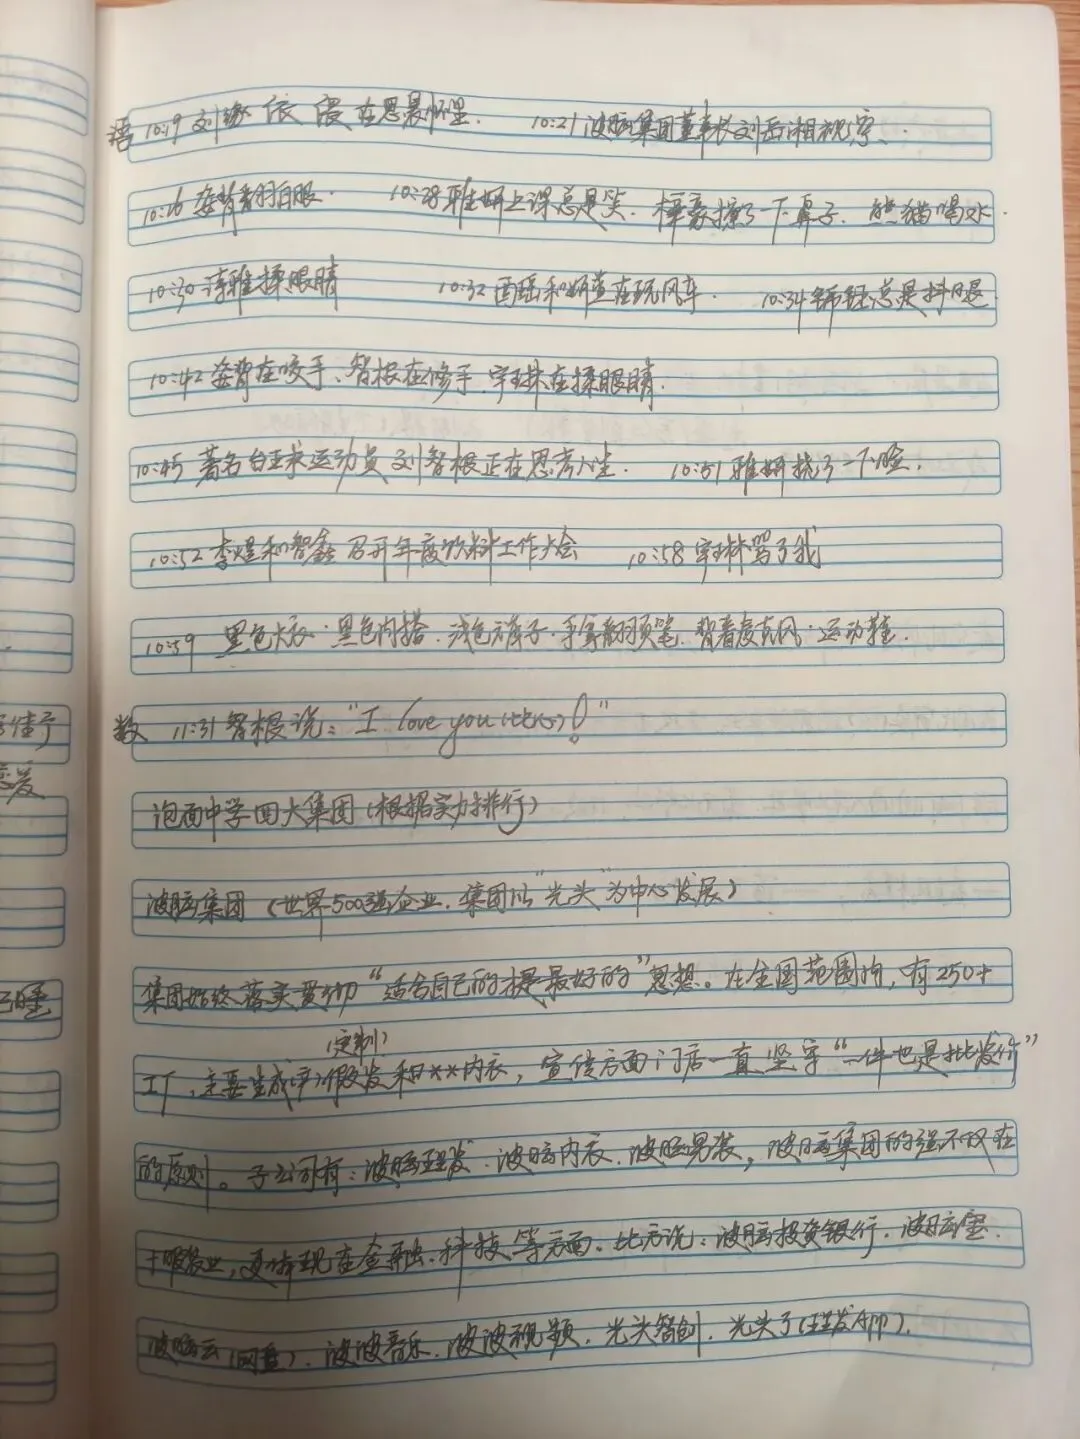 语 10:19 刘 依 在思晨怀里. 10:21 波脑集团董事长刘岳湘视察.
10:26 姿背翻白眼. 10:28 雅妍上课总是笑. 梓豪擦了一下鼻子. 熊猫喝水.
10:30 诗雅揉眼睛 10:32 雨瑶和妍萱在玩风车. 10:34 锦钰总是抖腿
10:42 在咬手、智根在修手. 宇琳在揉眼睛.
10:45 著名台球运动员刘智根正在思考人生. 10:51 雅妍挠了一下脸.
10:52 李煜和智鑫召开年度饮料工作大会 10:58 宇琳骂了我
10:59 黑色大衣·黑色内搭·浅色裤子·手拿翻顶笔. 背着麦克风·运动鞋.
数 11:31 智根说: "I love you !"
泡面中学四大集团(根据实力排行)
波脑集团 (世界500强企业. 集团以"光头"为中心发展)
集团始终落实贯彻"适合自己的才是最好的"思想。在全国范围内, 有250+
(定制)
工厂, 主要生成 假发和**内衣, 宣传方面门店一直坚守"一件也是批发价"
的原则。子公司有: 波脑理发·波脑内衣. 波脑男装, 波脑集团的强不仅在
于服装业, 更体现在金融、科技等方面. 比方说: 波脑投资银行. 波脑
波脑云(网盘). 波波音乐. 波波视频. 光头智创. 光头 (理发师).